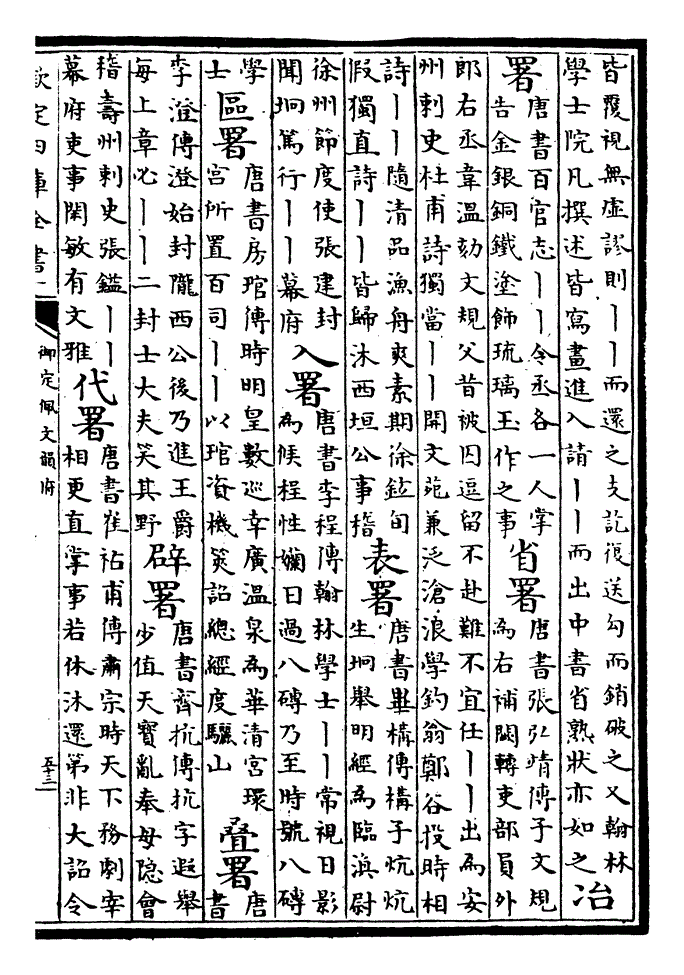 皆覆視無虛謬則丨丨而還之支訖復送勾而銷破之又翰林
學士院凡撰述皆寫畫進入請丨丨而出中書省熟狀亦如之
冶署
唐書百官志丨丨令丞各一人掌
告金銀銅鐵塗飾琉璃玉作之事
省署
唐書張弘靖傳子文規
為右補闕轉吏部員外
郎右丞韋溫劾文規父昔被囚逗留不赴難不宜任丨丨出為安
州刺史杜甫詩獨當丨丨開文苑兼泛滄浪學釣翁鄭谷投時相
詩丨丨隨清品漁舟爽素期徐鉉旬
假獨直詩丨丨皆歸沐西垣公事稽
表署
唐書畢構傳構子炕炕
生坰舉明經為臨渙尉
徐州節度使張建封
聞坰篤行丨丨幕府
入署
唐書李程傳翰林學士丨丨常視日影
為候程性嬾日過八磚乃至時號八磚
學
士
區署
唐書房琯傳時明皇數巡幸廣溫泉為華清宮環
宮所置百司丨丨以琯資機筭詔總經度驪山
疊署
唐
書
李澄傳澄始封隴西公後乃進王爵
每上章必丨丨二封士大夫笑其野
辟署
唐書齊抗傳抗字遐舉
少值天寶亂奉母隱會
稽壽州刺史張鎰丨丨
幕府吏事閑敏有文雅
代署
唐書崔祐甫傳肅宗時天下務劇宰
相更直掌事若休沐還第非大詔令
欽定四庫全書
御定佩文韻府
五十三